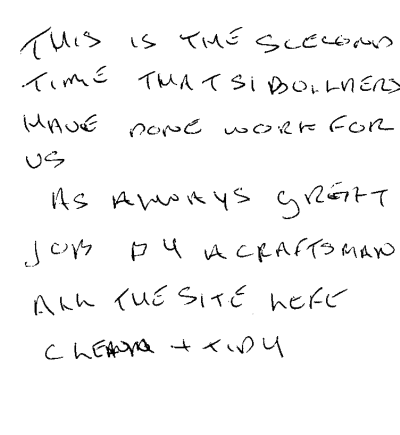 THIS IS THE SCECOND
TIME THAT SI BUILDERS
HAVE DONE WORK FOR
US
AS ALWAYS GREAT
JOB BY A CRAFTSMAN
ALL THE SITE LEFT
CLEAN + TIDY